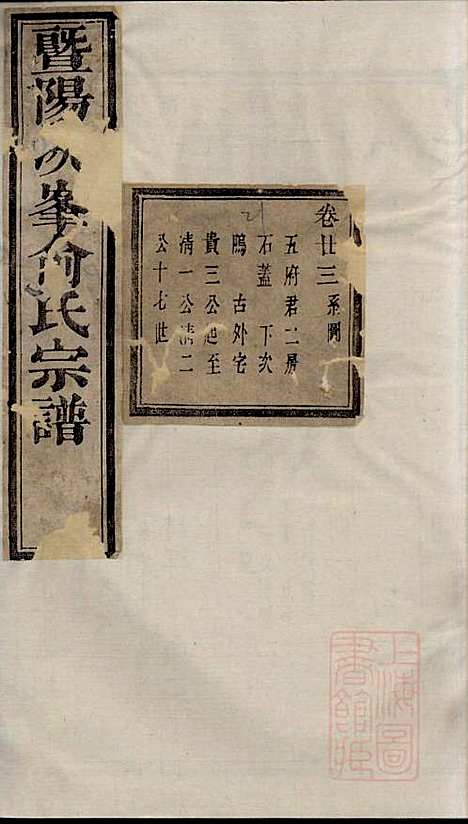 暨陽
峯何氏宗譜
卷廿三系圖
五府君二房
石蓋 下次
鴎 古外宅
貴三公起至
清一公清二
公十七世
上海圖
書館藏